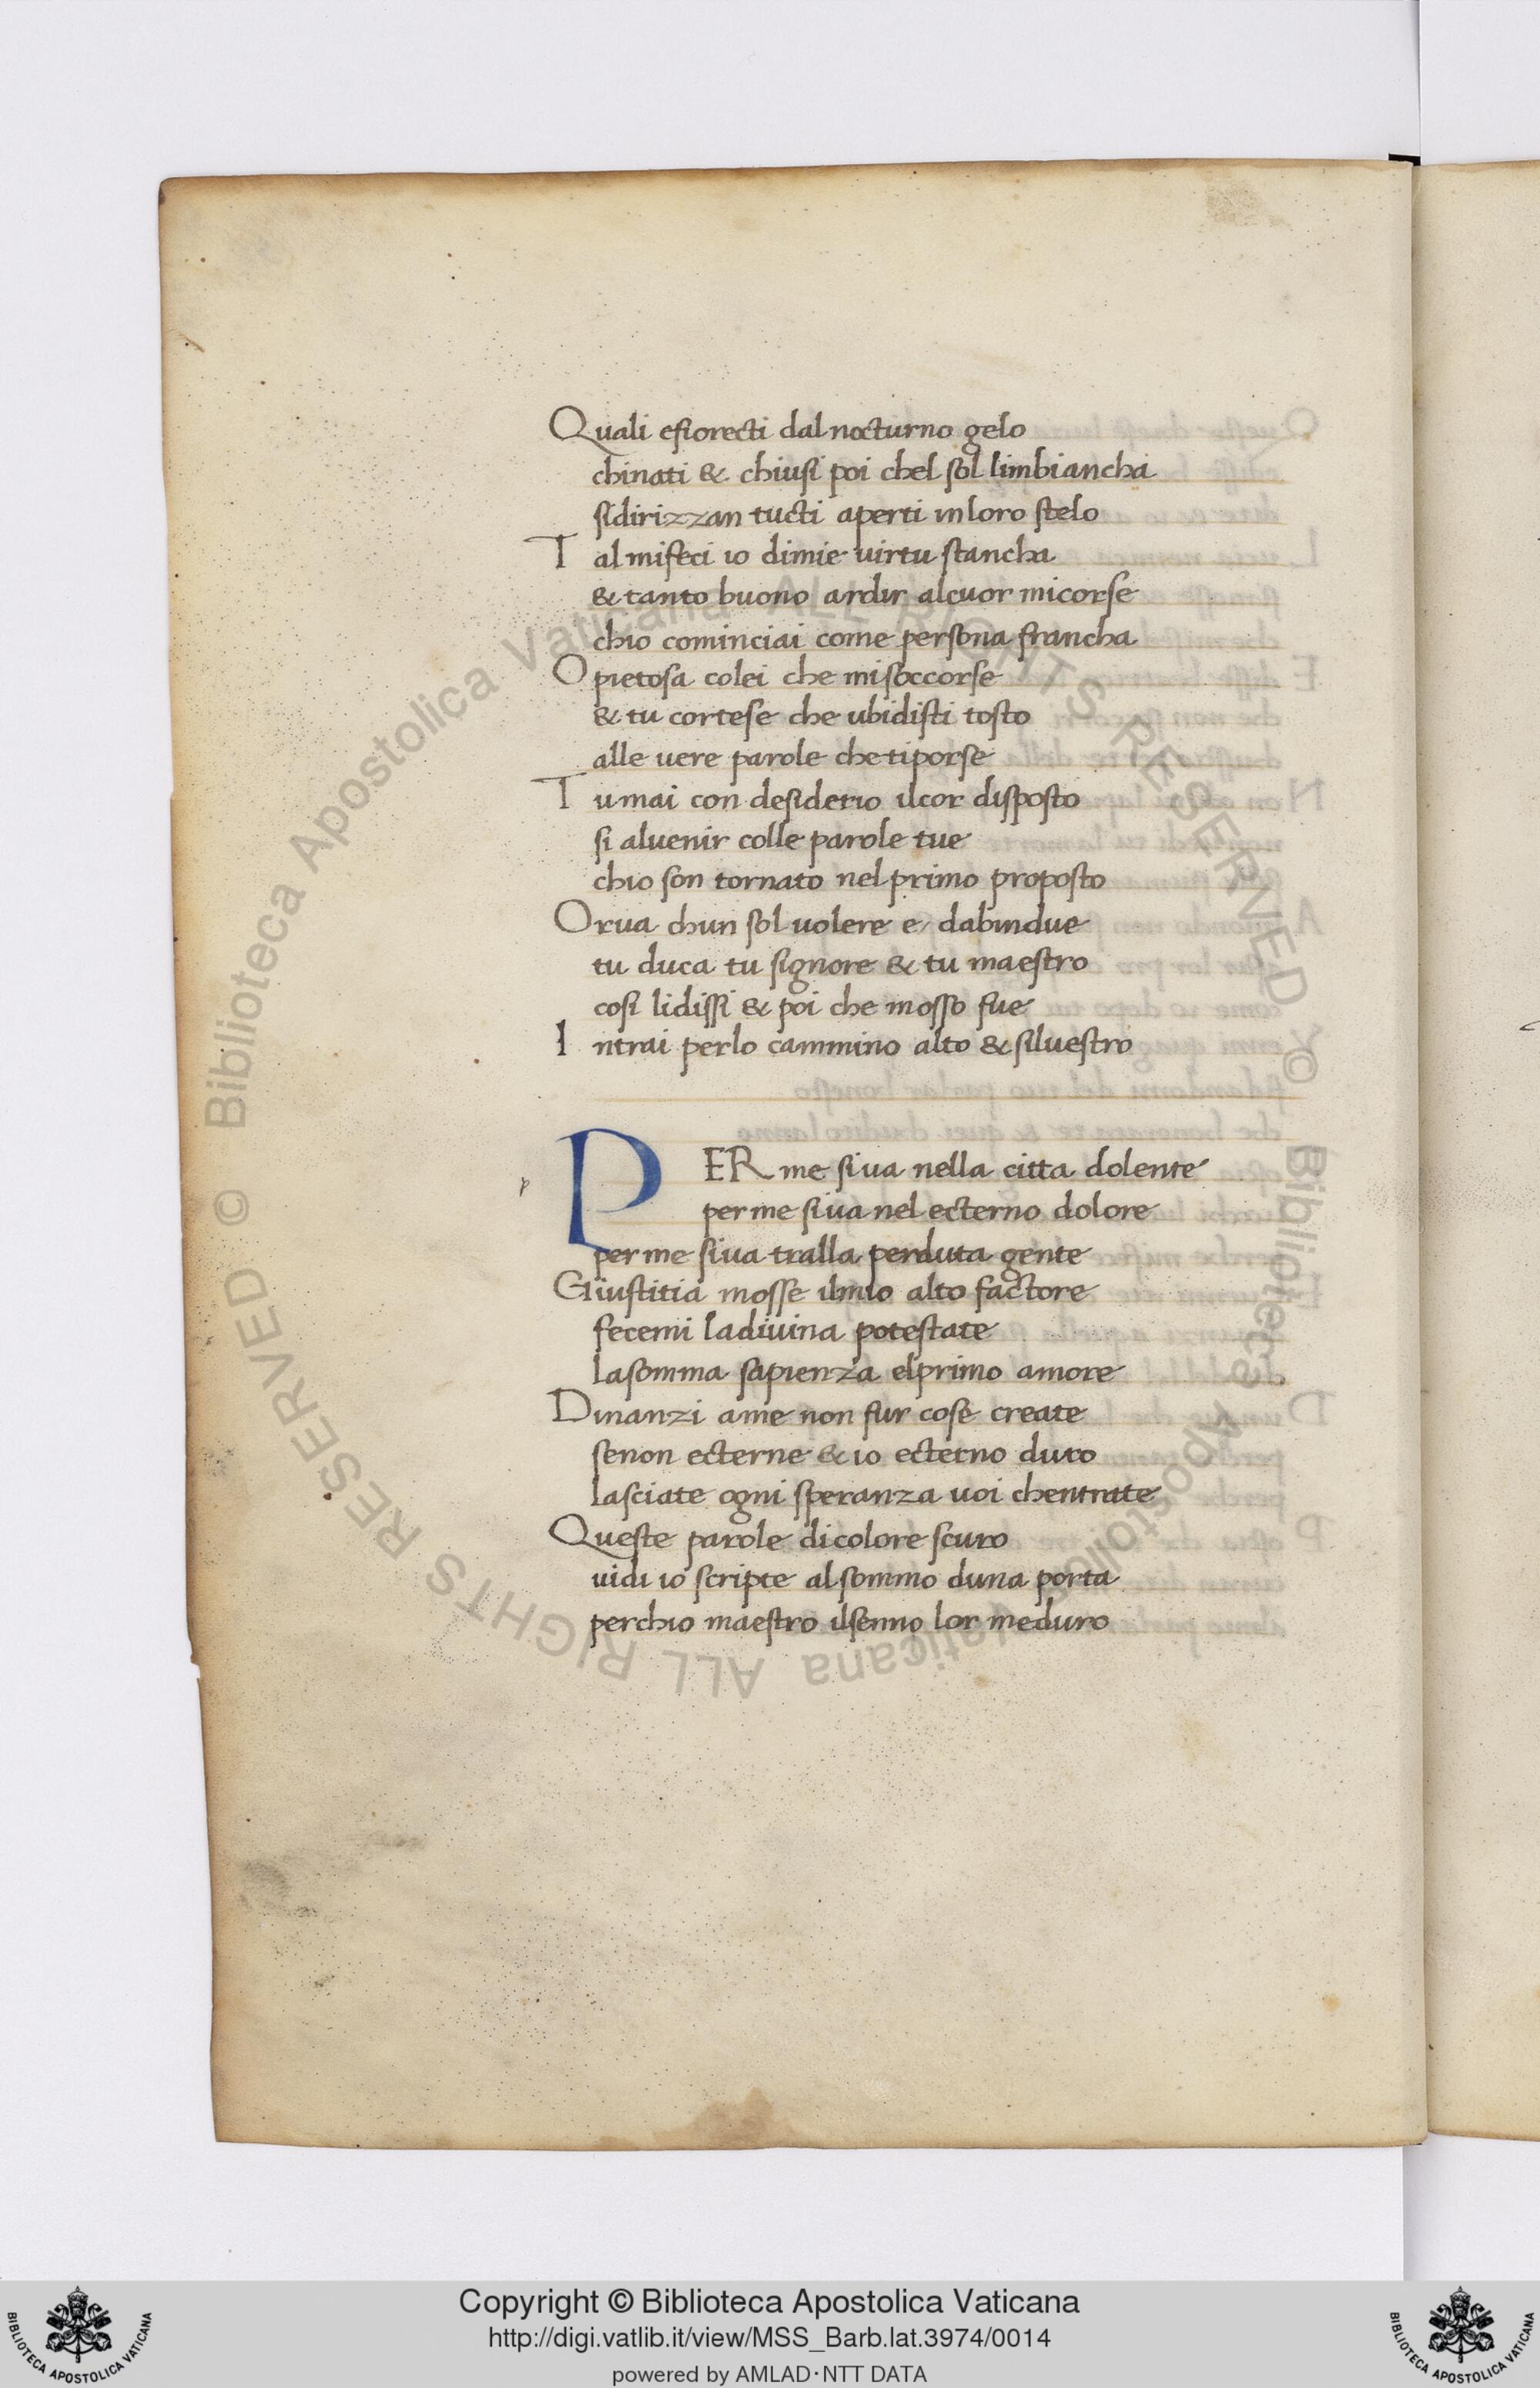 Quali efiorecti dal nocturno gelo
chinati & chiusi poi chel sol limbiancha
sidirizzan tucti aperti inloro stelo
Tal mifeci io dimie uirtu stancha
& tanto buono ardir alcuor micorse
chio cominciai come persona francha
O pietosa colei che misoccorse
& tu cortese che ubidisti tosto
alle uere parole che tiporse
Tu mai con desiderio ilcor disposto
si aluenir colle parole tue
chio son tornato nel primo proposto
Orua chun sol uolere e dabindue
tu duca tu signore & tu maestro
cosi lidissi & poi che mosso fue
Intrai perlo cammino alto & siluestro
p
PER me siua nella citta dolente
per me siua nel ecterno dolore
per me siua tralla perduta gente
Giustitia mosse ilmio alto factore
fecemi ladiuina potestate
lasomma sapienza elprimo amore
Dinanzi ame non fur cose create
senon ecterne & io ecterno duro
lasciate ogni speranza uoi chentrate
Queste parole dicolore scuro
uidi io scripte alsommo duna porta
perchio maestro ilsenno lor meduro
© Biblioteca Apostolica Vaticana ALL RIGHTS RESERVED
© Biblioteca Apostolica Vaticana ALL RIGHTS RESERVED
BIBLIOTECA APOSTOLICA VATICANA
Copyright © Biblioteca Apostolica Vaticana
http://digi.vatlib.it/view/MSS_Barb.lat.3974/0014
powered by AMLAD·NTT DATA
BIBLIOTECA APOSTOLICA VATICANA